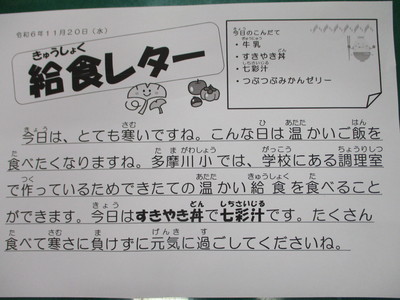 令和6年11月20日（水）
きゅうしょく
給食レター
今日のこんだて
・牛乳
・すきやき丼
・七彩汁
・つぶつぶみかんゼリー
今日は、とても寒いですね。こんな日は温かいご飯を
食べたくなりますね。多摩川小では、学校にある調理室
で作っているためできたての温かい給食を食べること
ができます。今日はすきやき丼で七彩汁です。たくさん
食べて寒さに負けずに元気に過ごしてくださいね。